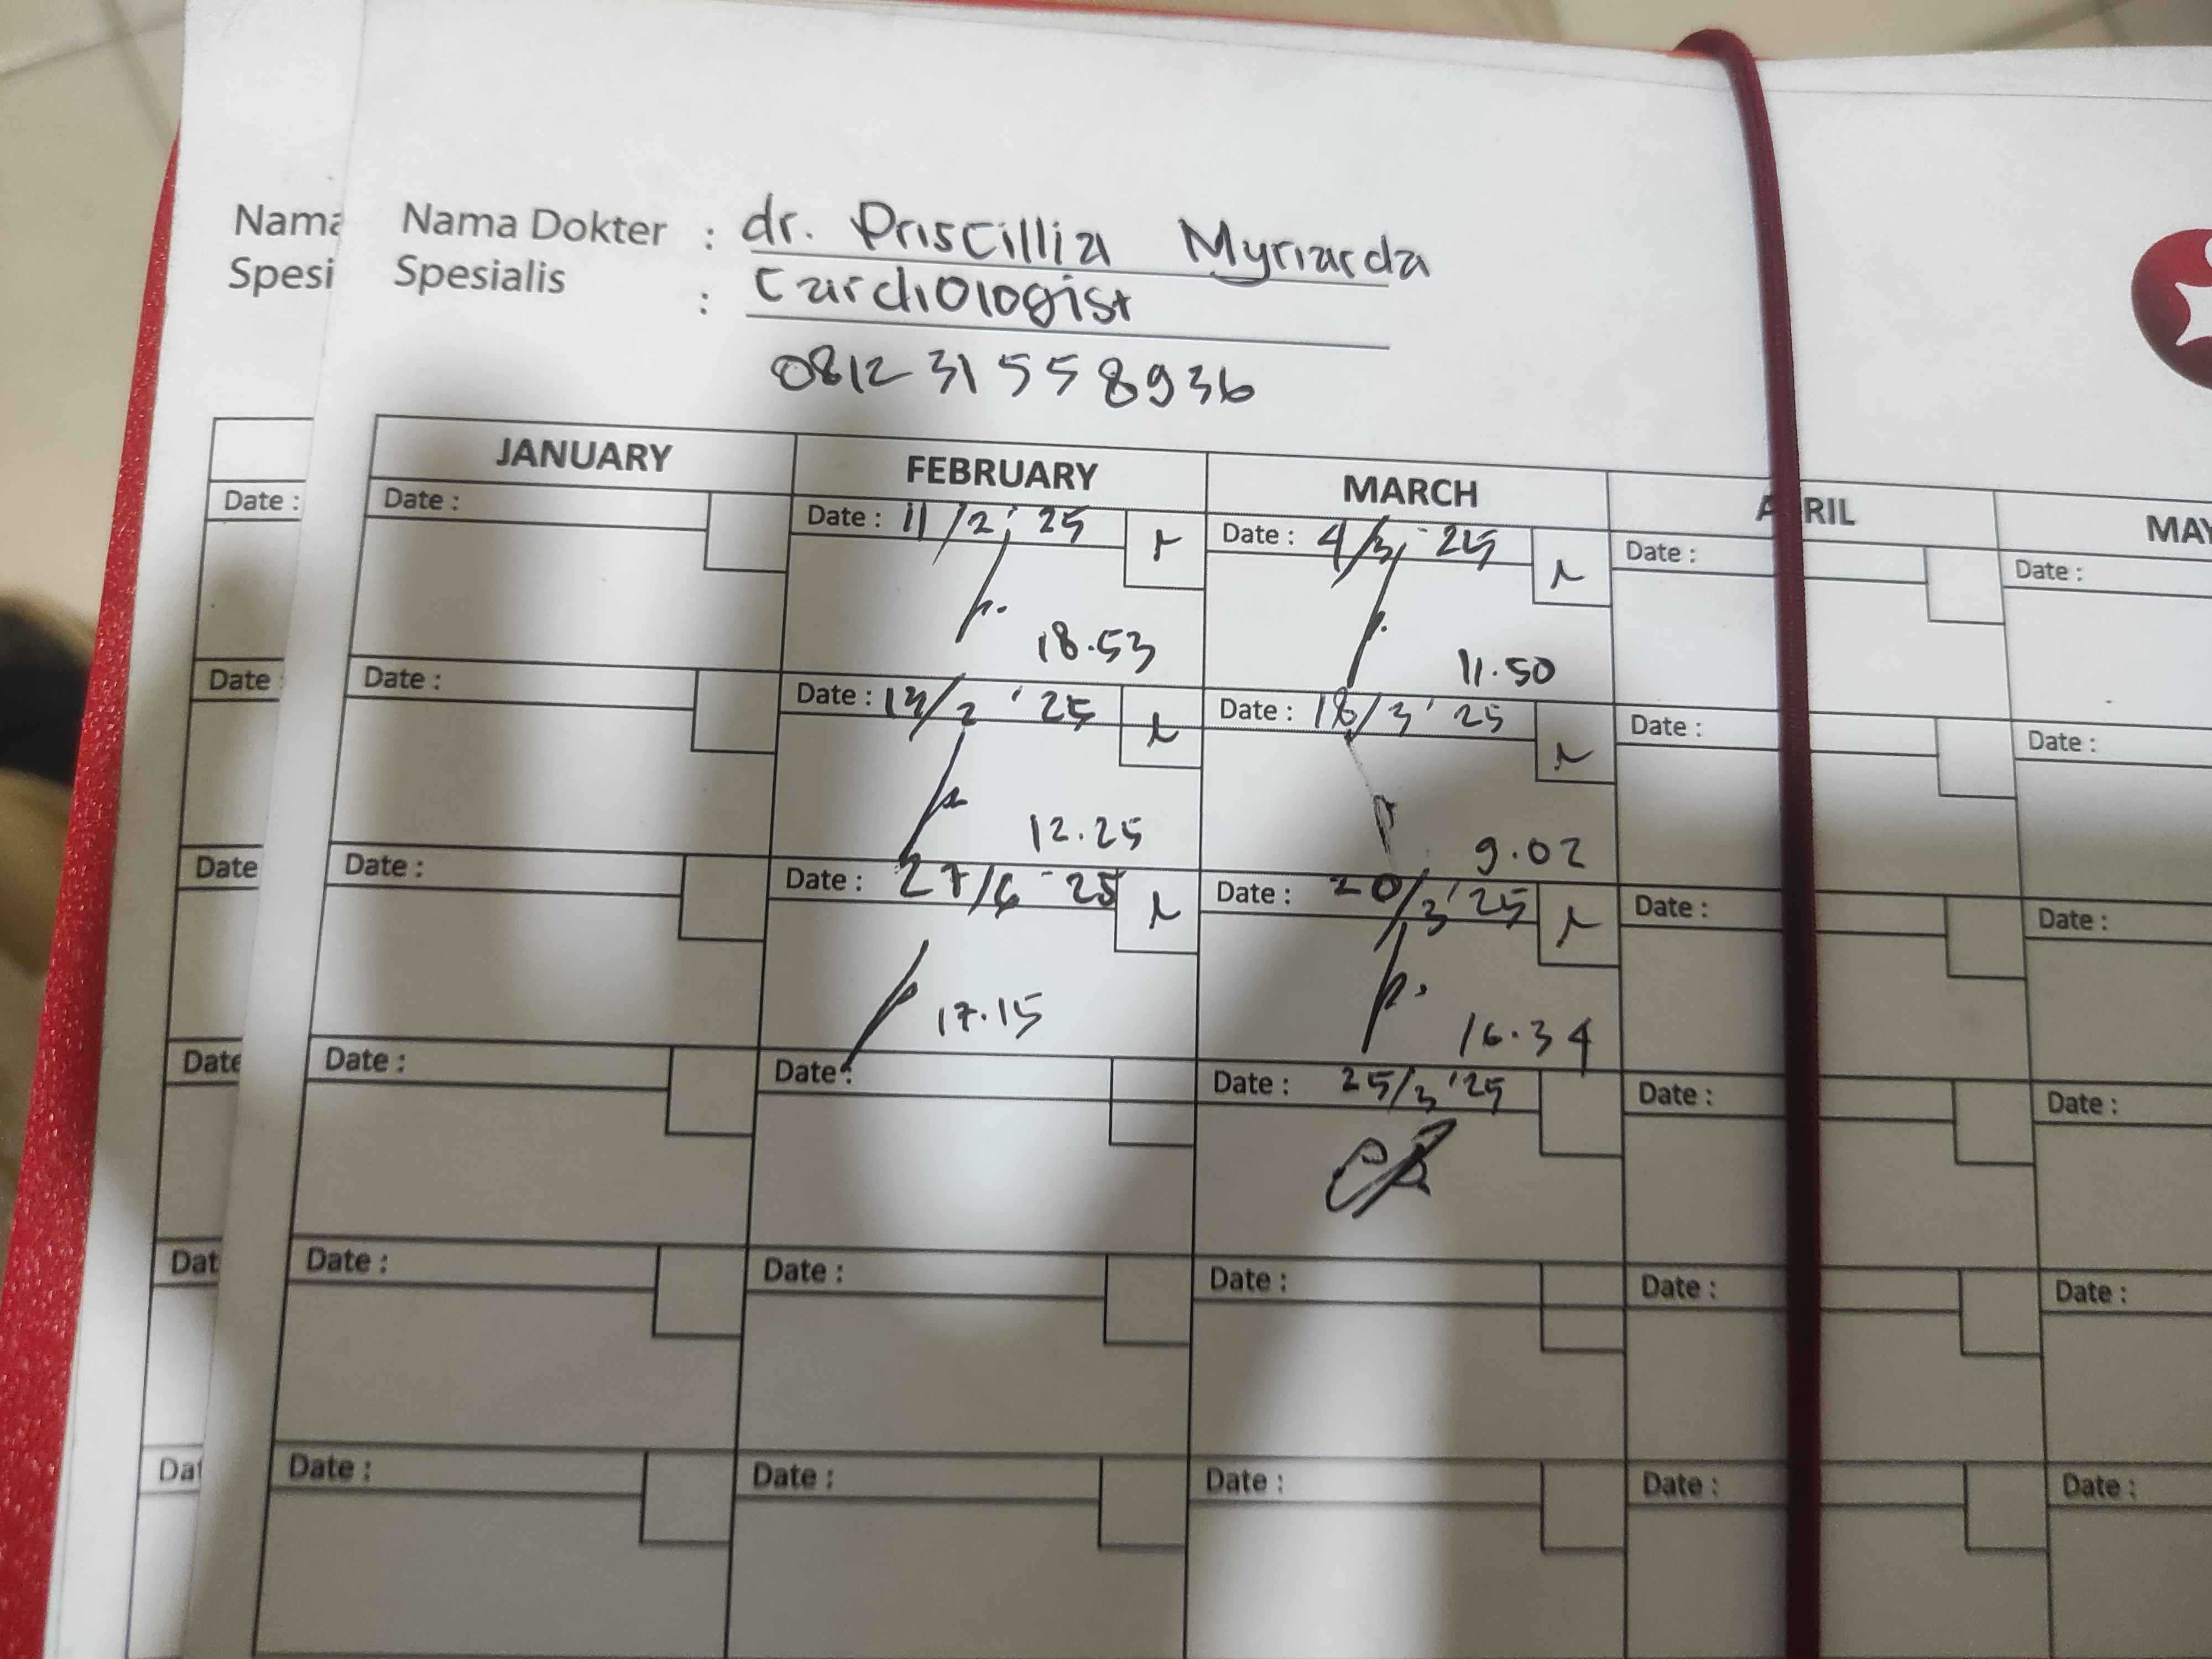 Nama Dokter : dr. Priscillia Myriarda
Spesialis : Cardiologist
081231558936
Nama
Spesi
JANUARY FEBRUARY MARCH APRIL MAY
Date : Date : Date : 11/2 '25 Date : 4/3 '25 Date : Date :
18.53 11.50
Date : Date : Date : 13/2 '25 Date : 18/3 '25 Date : Date :
12.25 9.02
Date Date : Date : 27/ 25 Date : 20/3 '25 Date : Date :
17.15 16.34
Date Date : Date : Date : 25/3 '25 Date : Date :
Dat Date : Date : Date : Date : Date :
Dat Date : Date : Date : Date : Date :